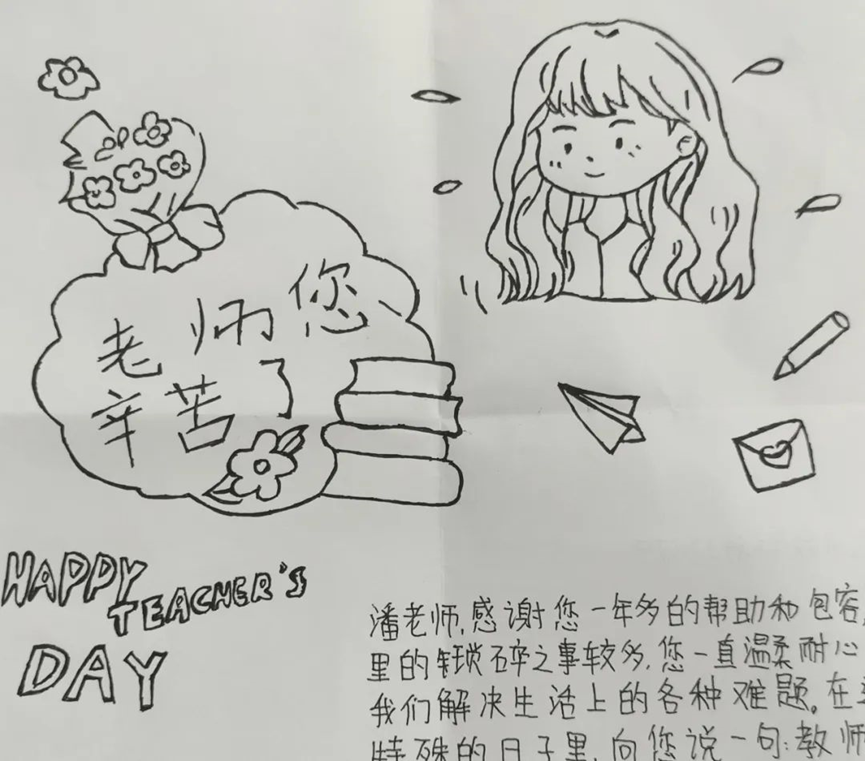 老师您
辛苦了
HAPPY
TEACHER'S
DAY
潘老师,感谢您一年多的帮助和包容,
里的琐碎之事较多,您一直温柔耐心
我们解决生活上的各种难题。在
特殊的日子里,向您说一句:教师